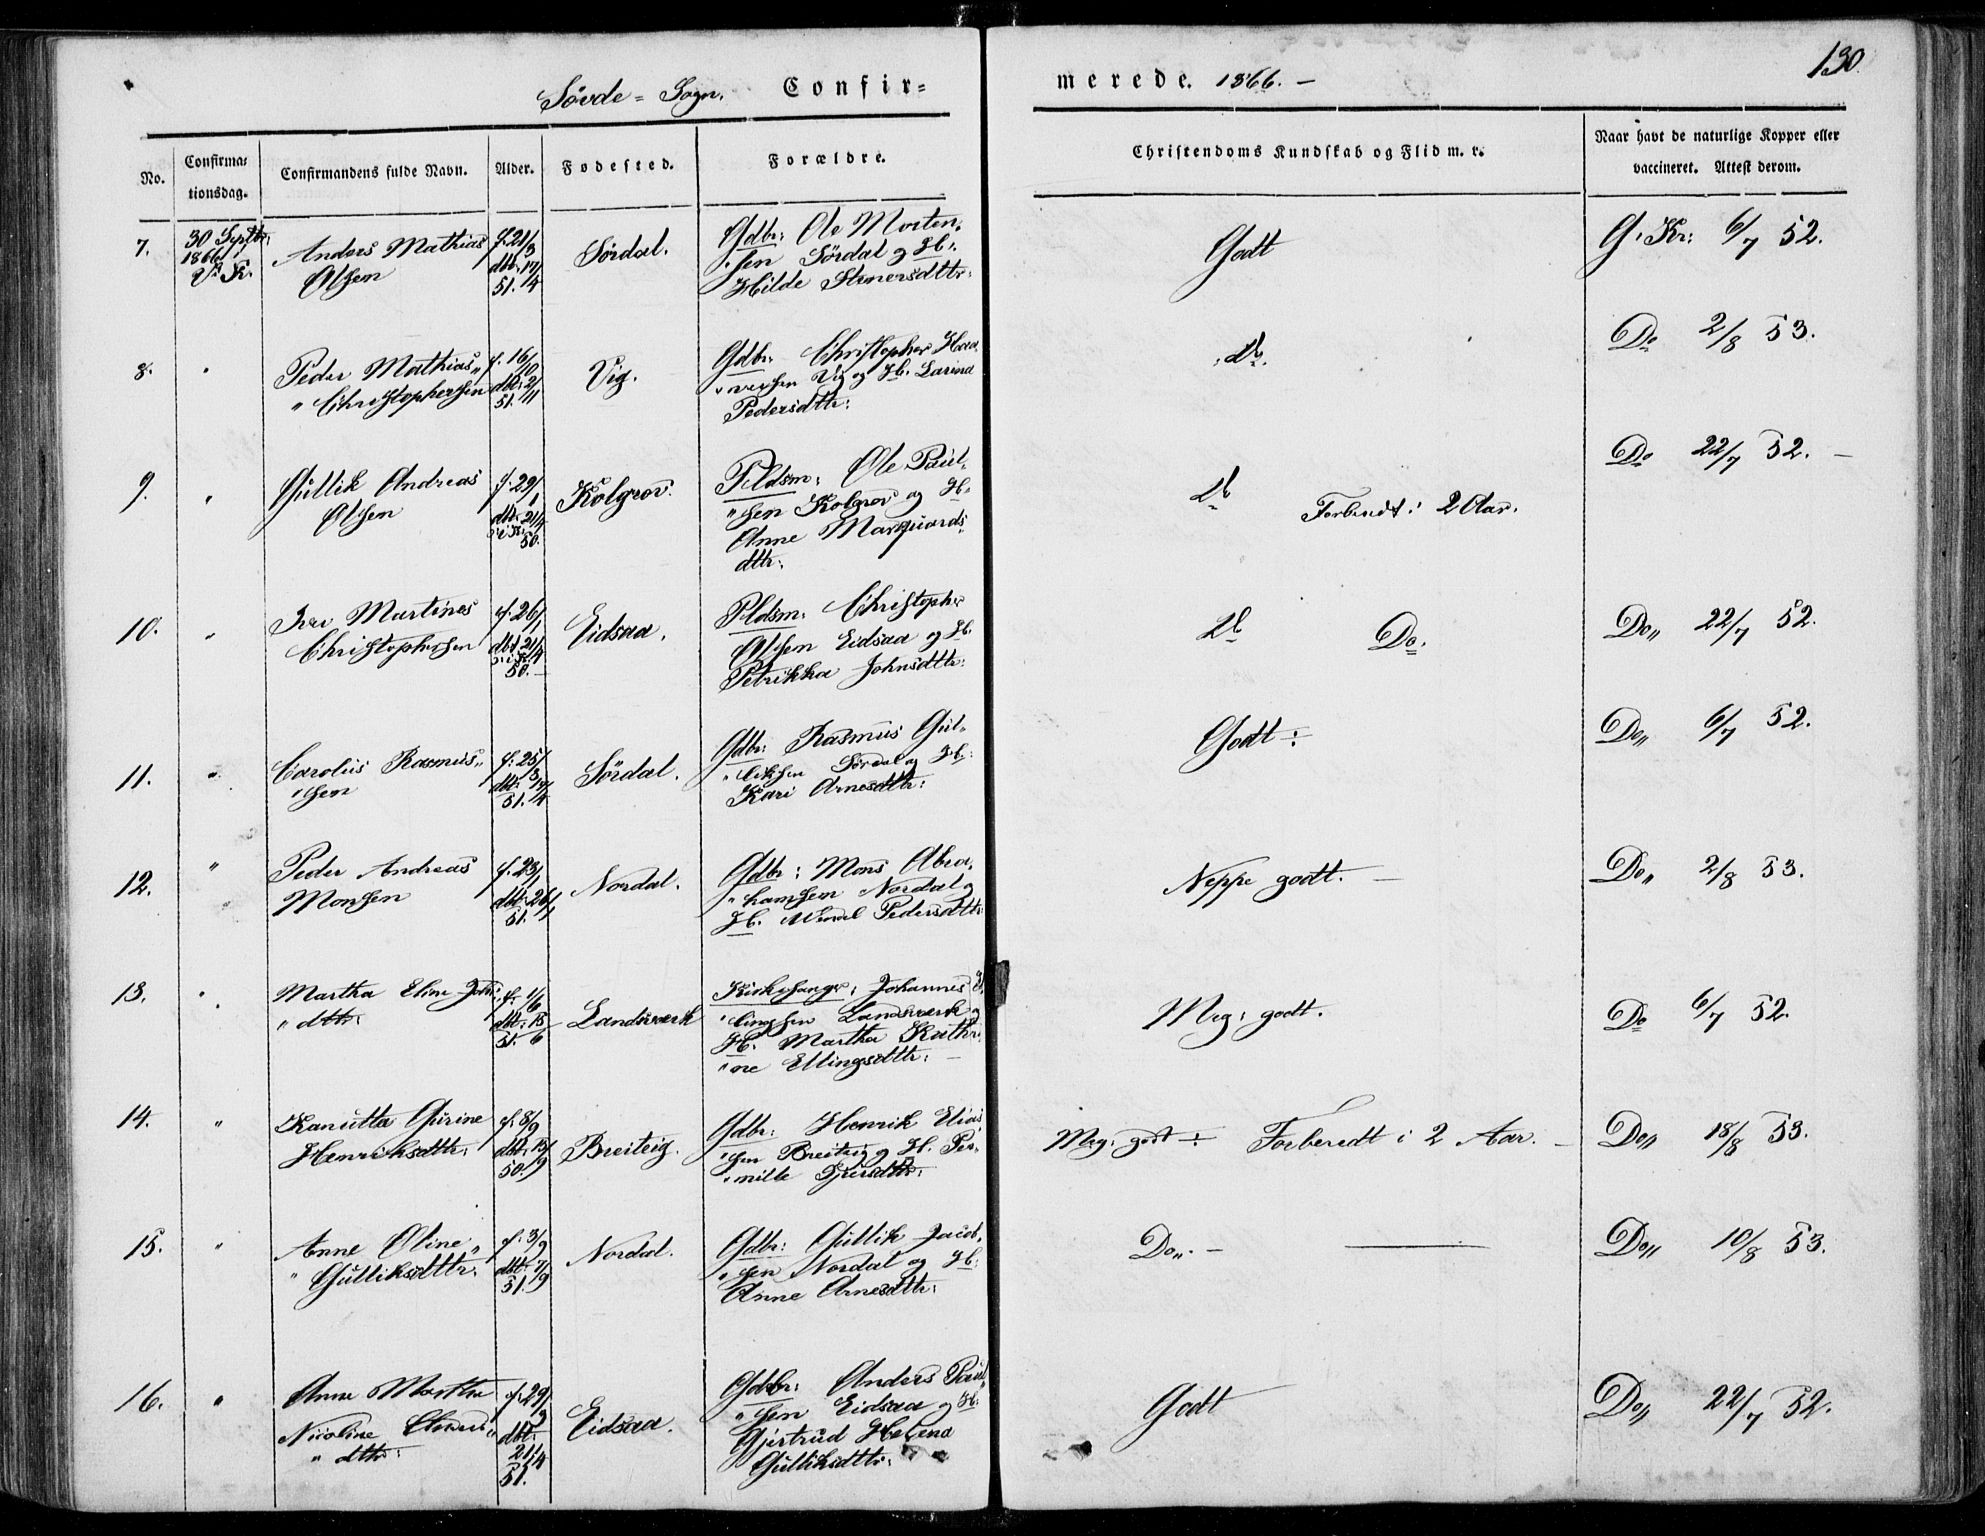 130.
Søvde = Sogn. Confir=
merede. 1866. –
No.
Confirma=
tionsdag.
Confirmandens fulde Navn.
Alder.
Fødested.
Forældre.
Christendoms Kundskab og Flid m. v.
Naar havt de naturlige Kopper eller
vaccineret. Attest derom.
7.
30 Septbr:
1866
Anders Mathias
Olsen
f. 21/3
dbt. 17/4
51.
Sørdal.
Gdbr: Ole Morten-
"sen Sørdal og H.
Hilde
Godt
G. Kr: 6/7 52.
8.
"
Peder Mathias"
"Christophersen
f. 16/10
dbt. 2/11
51.
Vig.
Gdbr: Christopher
Vig og H. Larina
Pedersdttr:
do.
Do 2/8 53.
9.
"
Gullik Andreas
Olsen
f. 29/1
dbt. 21/4
50.
Kolgrov.
Pldsm: Ole Paul-
"sen Kolgrov og H.
Anne Marquards-
dttr:
do Forberedt i 2 Aar.
Do 22/7 52. –
10.
"
Iver Martines
Christophersen
f. 26/1
dbt. 21/4
50. –
Eidsaa.
Pldsm: Christopher
Olsen Eidsaa og H.
Petrikka Johnsdttr:
do Do.
Do" 22/7 52.
11.
"
Carolus Rasmus"
"sen
f. 25/3
dbt. 17/4
51.
Sørdal.
Gdbr: Rasmus Gul-
"liksen Sørdal og H.
Kari Arnesdttr:
Godt ÷
Do" 6/7 52.
12.
"
Peder Andreas
Monsen
f. 23/1
dbt. 26/1
51.
Nordal.
Gdbr: Mons Abra-
"hamsen Nordal og
H. Pedersdttr:
Neppe godt. –
Do" 2/8 53.
13.
"
Martha Eline Joh:
"dttr:
f. 1/6
dbt. 15/6
51.
Landsværk
Kirkesanger: Johannes
"lingsen Landsværk og
H. Martha Kathri-
"ne Ellingsdttr: –
Meg: godt.
Do 6/7 52.
14.
"
Kanutta Gurine
Henriksdttr:
f. 8/9
dbt. 15/9
50.
Breiteig.
Gdbr: Henrik Elias
"sen Breiteig og H. Per-
"nille
Meg: godt ÷ Forberedt i 2 Aar. –
Do" 18/8 53.
15.
"
Anne Oline"
"Gulliksdttr:
f. 3/9
dbt. 7/9
51.
Nordal.
Gdbr: Gullik Jacob-
"sen Nordal og H.
Anne Arnesdttr:
Do". –
Do" 10/8 53.
16.
"
Anne Marthe
Nicoline Anders"
"dttr:
f. 29/3
dbt.
21/4
51.
Eidsaa.
Gdbr: Anders Paul-
"sen Eidsaa og H.
Gjertrud Helena
Gulliksdttr:
Godt
Do" 22/7 52.